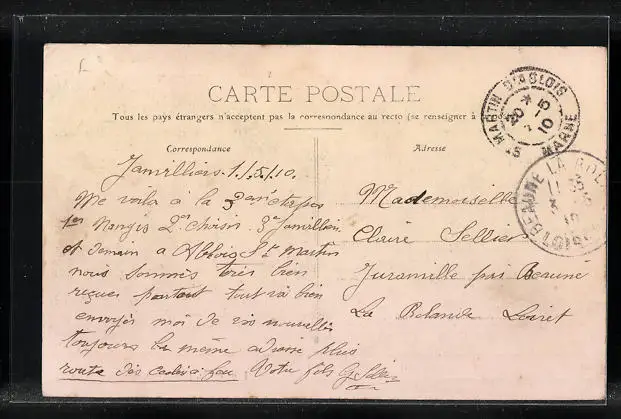 CARTE POSTALE
Tous les pays étrangers n'acceptent pas la correspondance au recto (se renseigner à
Correspondance
Adresse
Janvilliers 1/5/10.
Me voila à la 3
1er Nangis 2em Choisi 3e Janvilliers
et demain a Ablois St Martin
nous sommes très bien
reçues partout tout va bien
envoyés moi de vos nouvelles
toujours la même adresse plus
route Votre fils G Sellier
Mademoiselle
Claire Sellier
Juranville près Beaune
La Rolande Loiret
MARTIN D'ABLOIS
MARNE
BEAUNE LA ROL
LOIRET